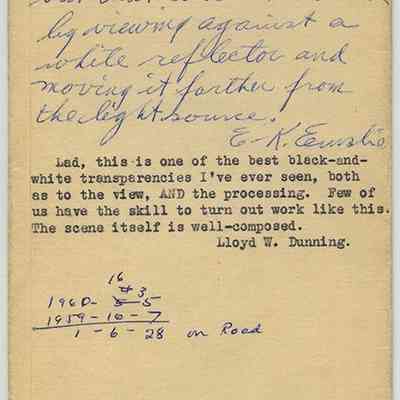 by viewing against a
white reflector and
moving it farther from
the light source.
E-K. Emslie
Lad, this is one of the best black-and-
white transparencies I've ever seen, both
as to the view, AND the processing. Few of
us have the skill to turn out work like this.
The scene itself is well-composed.
Lloyd W. Dunning.
16
3
1960- 5 5
1959-10-7
1-6-28 on Road